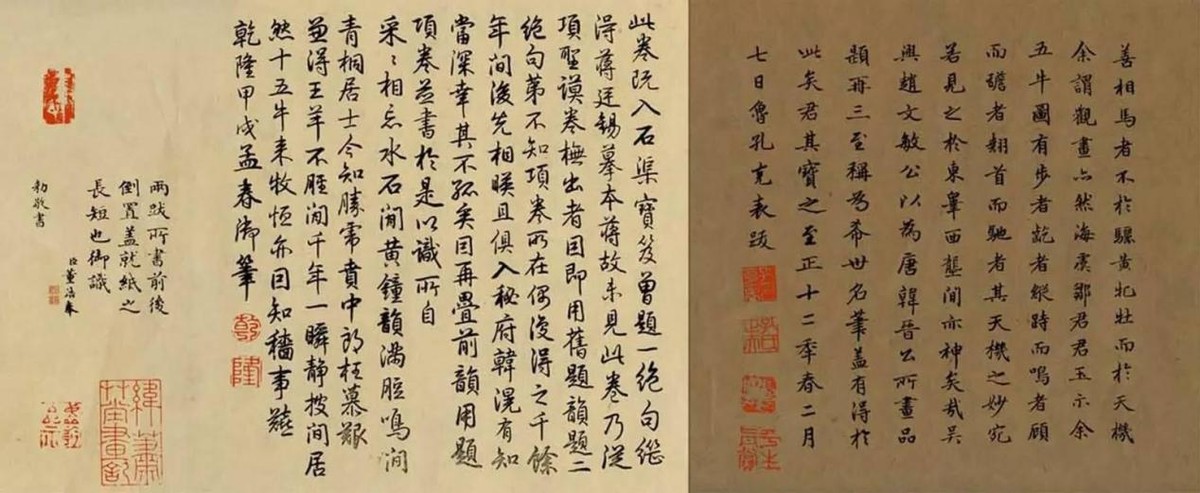 善相馬者不於驪黃牝牡而於天機
余謂觀畫亦然海虞鄒君君玉示余
五牛圖有步者齕者縱跱而鳴者顧
而齝者翹首而馳者其天機之妙宛
若見之於東皋西壟間亦神矣哉吳
興趙文敏公以為唐韓晉公所畫品
題再三至稱為希世名筆蓋有得於
此矣君其寶之至正十二年春二月
七日魯孔克表跋
此卷既入石渠寶笈曾題一絕句繼
得蔣廷錫摹本蔣故未見此卷乃從
項聖謨卷橅出者因即用舊題韻題二
絕句第不知項卷所在偶復得之千餘
年間後先相暎且俱入秘府韓滉有知
當深幸其不孤矣因再疊前韻用題
項卷並書於是以識所自
采〻相忘水石間黃鐘韻滿脰鳴間
青桐居士今知勝霈賁中郎枉慕艱
並得王羊不脛間千年一瞬靜披間居
然十五牛來牧恒亦因知穡事艱
乾隆甲戌孟春御筆
乾隆
兩跋所書前後
倒置蓋就紙之
長短也御識
臣董浩奉
勅敬書
緯蕭草堂畫記